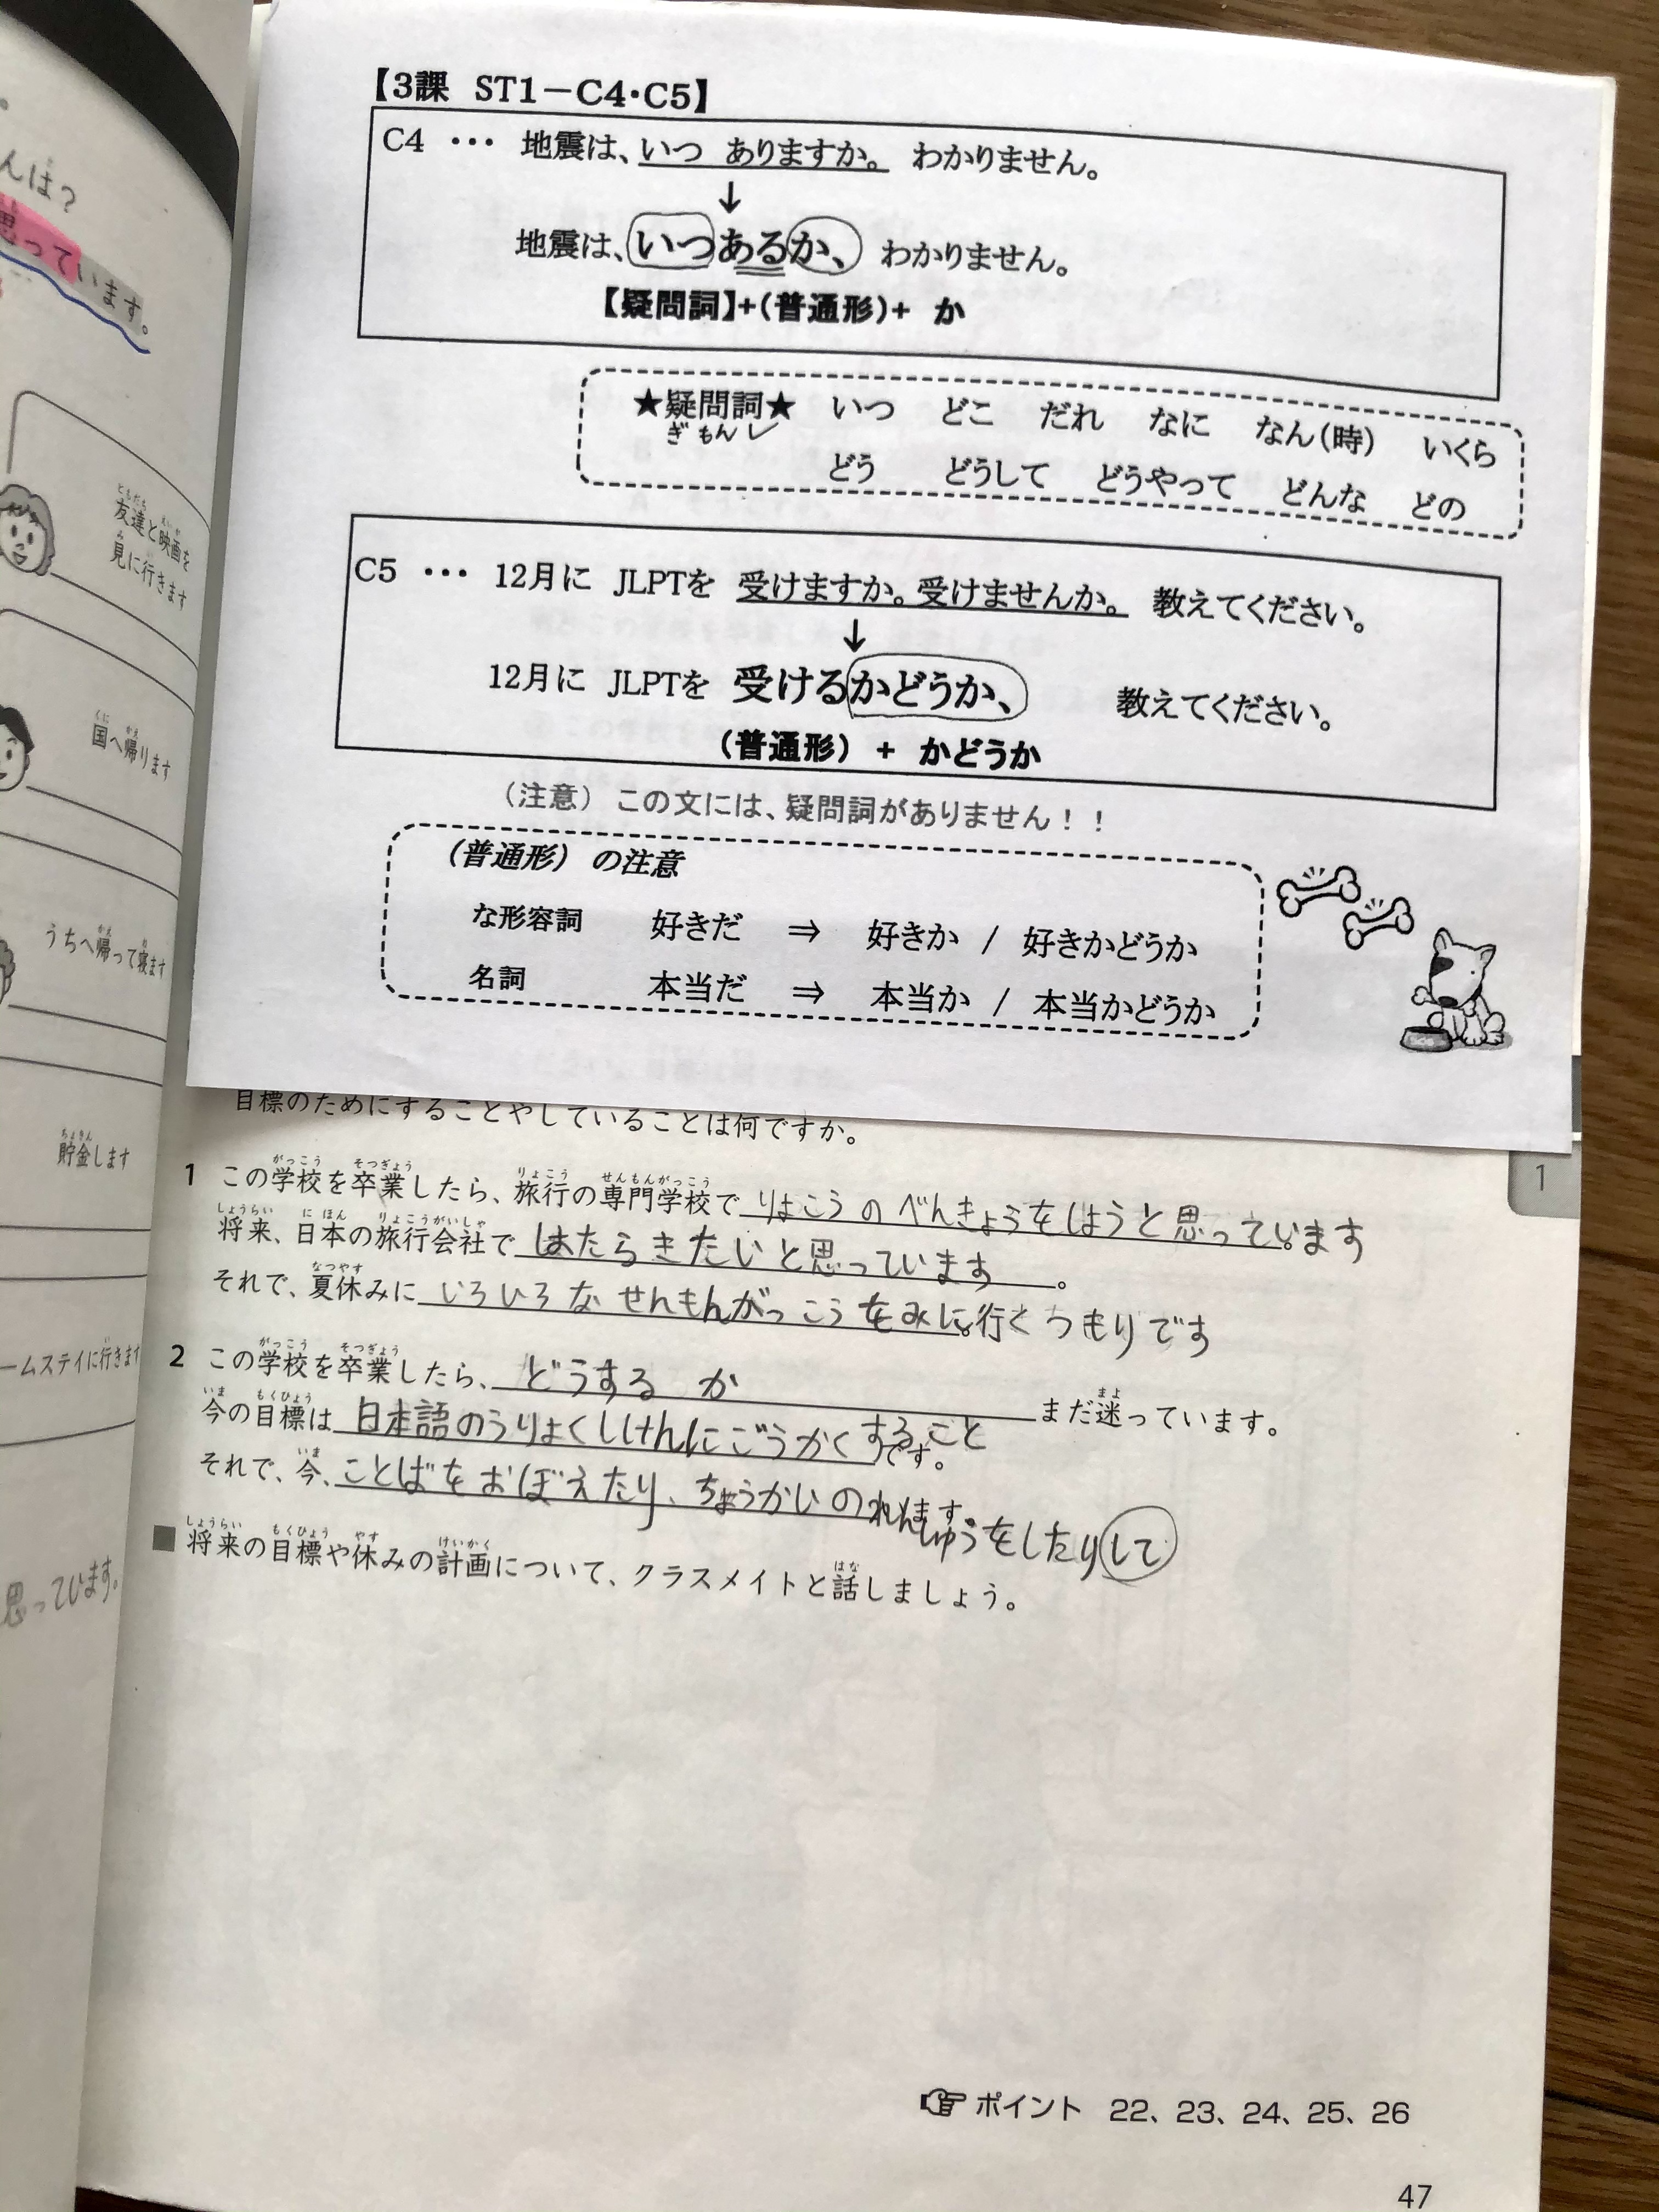 んは?
思っています。
友達と映画を
見に行きます
国へ帰ります
うちへ帰って寝ます
貯金します
ームステイに行きます
思っています。
【3課 ST1－C4・C5】
C4 ・・・ 地震は、いつ ありますか。 わかりません。
↓
地震は、いつあるか、 わかりません。
【疑問詞】+(普通形)+ か
★疑問詞★ いつ どこ だれ なに なん(時) いくら
ぎもんし
どう どうして どうやって どんな どの
C5 ・・・ 12月に JLPTを 受けますか。受けませんか。 教えてください。
↓
12月に JLPTを 受けるかどうか、 教えてください。
(普通形) + かどうか
(注意) この文には、疑問詞がありません!!
(普通形) の注意
な形容詞 好きだ ⇒ 好きか / 好きかどうか
名詞 本当だ ⇒ 本当か / 本当かどうか
目標のためにすることやしていることは何ですか。
1
1 この学校を卒業したら、旅行の専門学校で りょこうのべんきょうをしようと思っています。
将来、日本の旅行会社で はたらきたいと思っています。
それで、夏休みに いろいろなせんもんがっこうをみに行くつもりです。
2 この学校を卒業したら、どうするか まだ迷っています。
今の目標は 日本語のうりょくしけんにごうかくすること です。
それで、今、ことばをおぼえたり、ちょうかいのれんしゅうをしたりして ます。
■ 将来の目標や休みの計画について、クラスメイトと話しましょう。
ポイント 22、23、24、25、26
47